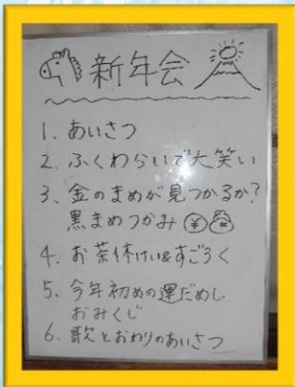 新年会
1. あいさつ
2. ふくわらいで大笑い
3. 金のまめが見つかるか?
黒まめつかみ ¥
4. お茶休けい&すごろく
5. 今年初めの運だめし
おみくじ
6. 歌とおわりのあいさつ